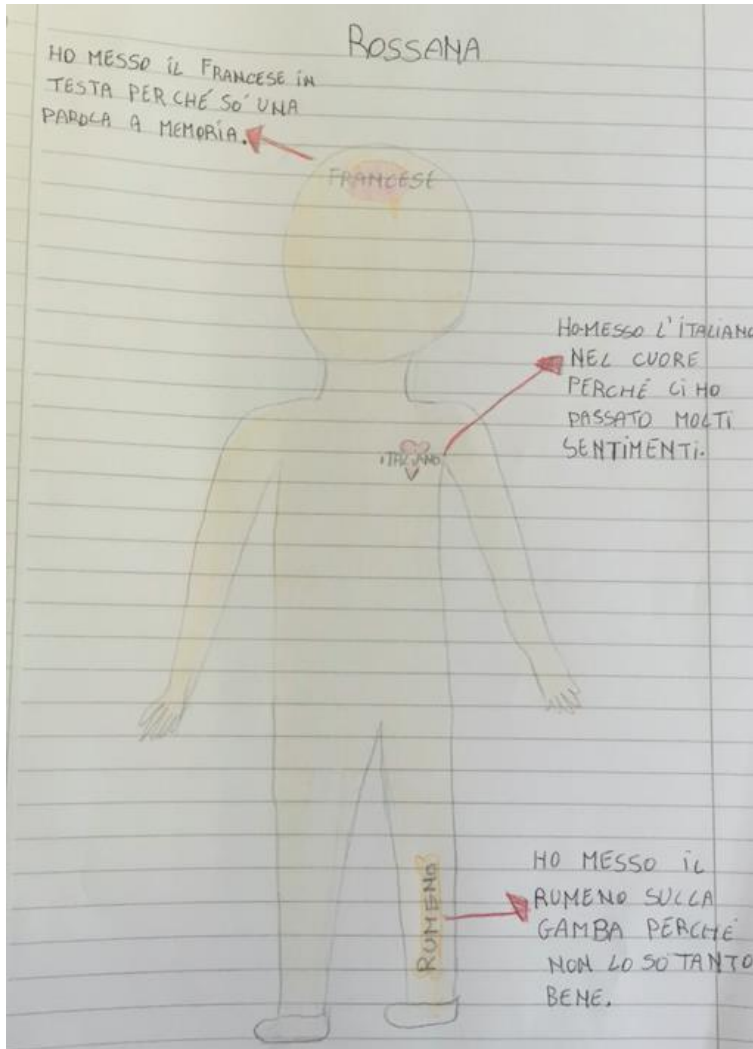 ROSSANA
HO MESSO IL FRANCESE IN
TESTA PERCHÉ SO' UNA
PAROLA A MEMORIA.
FRANCESE
HO MESSO L'ITALIANO
NEL CUORE
PERCHÉ CI HO
PASSATO MOLTI
SENTIMENTI.
ITALIANO
HO MESSO IL
RUMENO SULLA
GAMBA PERCHÉ
NON LO SO TANTO
BENE.
RUMENO